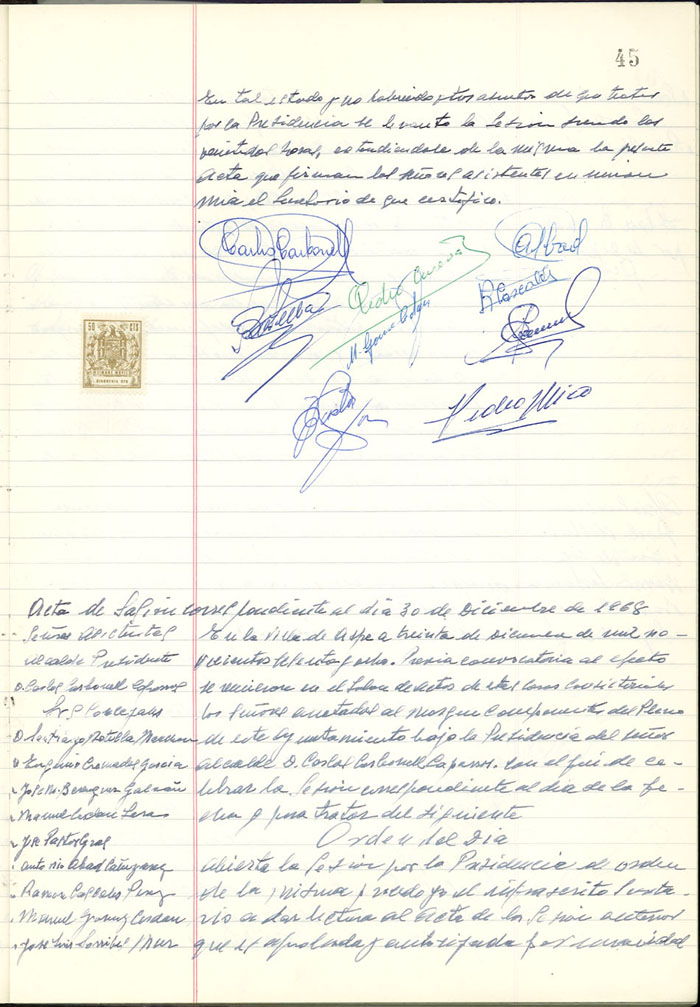 45
En tal estado y no habiendo otros asuntos de que tratar
por la Presidencia se levanto la Sesion siendo las
horas, extendiendose de la misma la presente
acta que firman los señores asistentes en union
mia el Secretario de que certifico.
Carlos Carbonell
A Abad
Pedro Cuevas
R Pascales
M. Gomez Cerdan
Pedro Mico
50 CTS
Acta de Sesion correspondiente al dia 30 de Diciembre de 1968
Señores asistentes
Alcalde Presidente
D. Carlos Carbonell Caparros
Srs Concejales
D. Santiago Botella
Eugenio Cremades Garcia
Jose M. Berenguer Galvañ
Manuel
Jose Pastor Gras
Antonio Abad Cañizares
Ramon Pascales Perez
Manuel Gomez Cerdan
Jose Luis Mira
En la villa de Aspe a treinta de Diciembre de mil no-
vecientos sesenta y ocho. Previa convocatoria al efecto
se reunieron en el Salon de actos de estas Casas Consistoriales
los Señores anotados al margen Componentes del Pleno
de este Ayuntamiento bajo la Presidencia del señor
alcalde D. Carlos Carbonell Caparros. con el fin de ce-
lebrar la Sesion correspondiente al dia de la fe-
cha y para tratar del siguiente
Orden del Dia
Abierta la Sesion por la Presidencia de orden
de la misma procedo yo el infrascrito Secreta-
rio a dar lectura al acta de la Sesion anterior
que es aprobada y autorizada por unanimidad